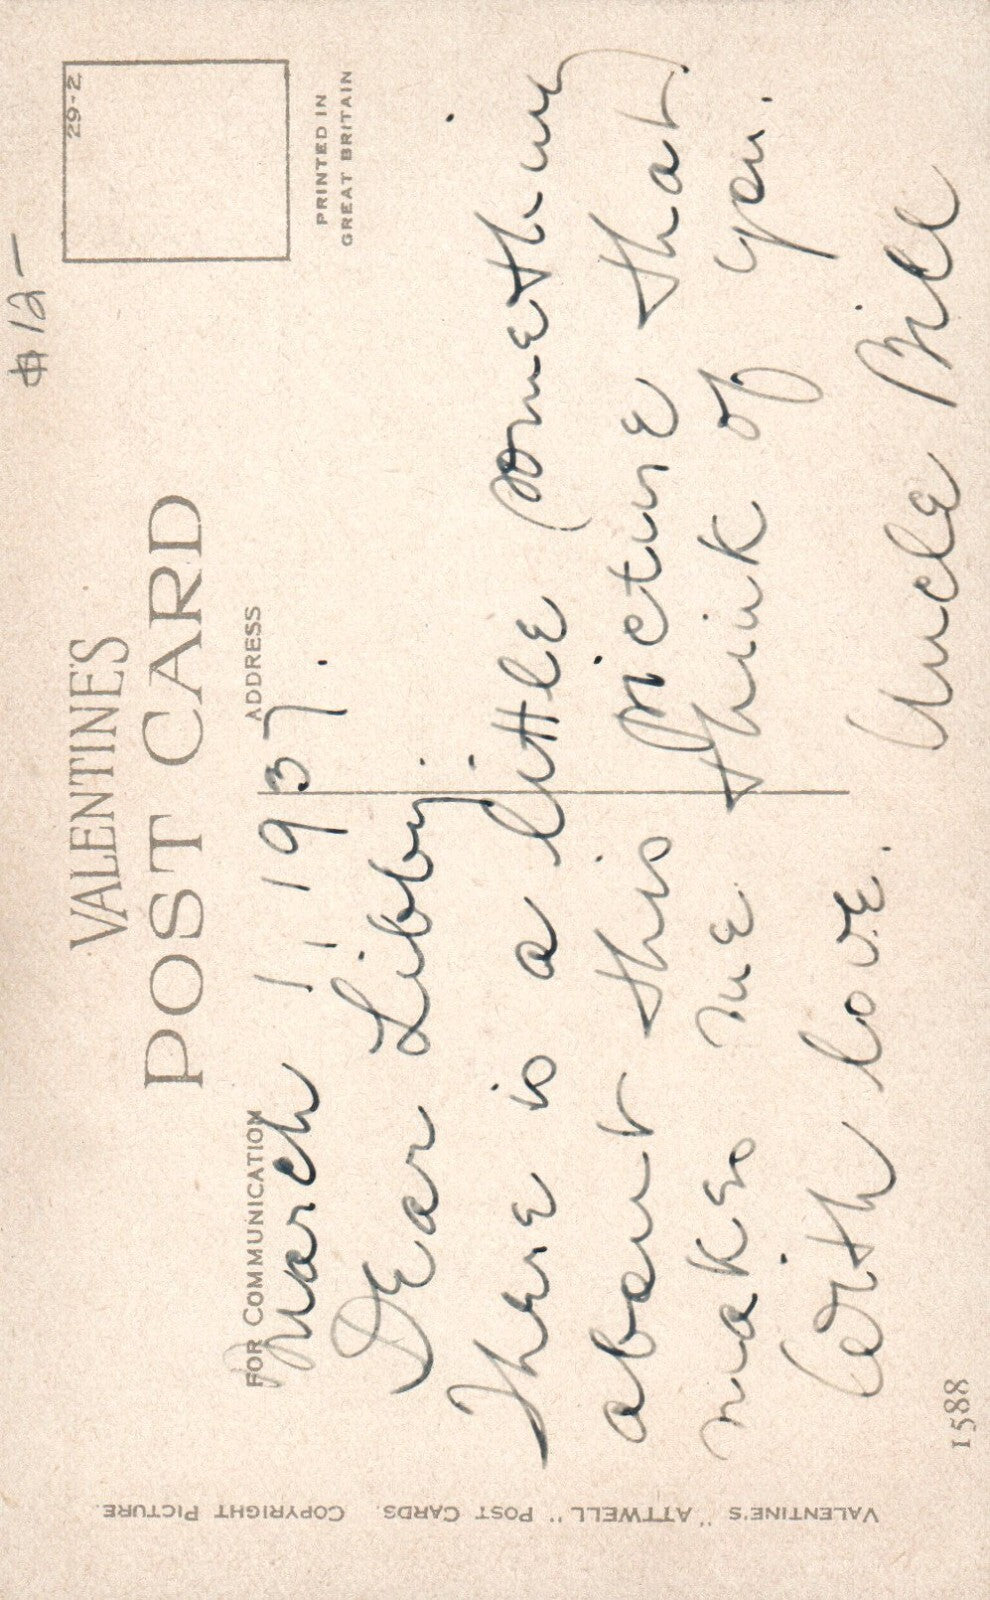 $12-
VALENTINE'S
POST CARD
29-2
PRINTED IN
GREAT BRITAIN
FOR COMMUNICATION
ADDRESS
March 1, 1937.
Dear Libby:
There is a little something
about this picture that
makes me think of you.
With love.
Uncle Bill
VALENTINE'S "ATTWELL" POST CARDS. COPYRIGHT PICTURE.
1588